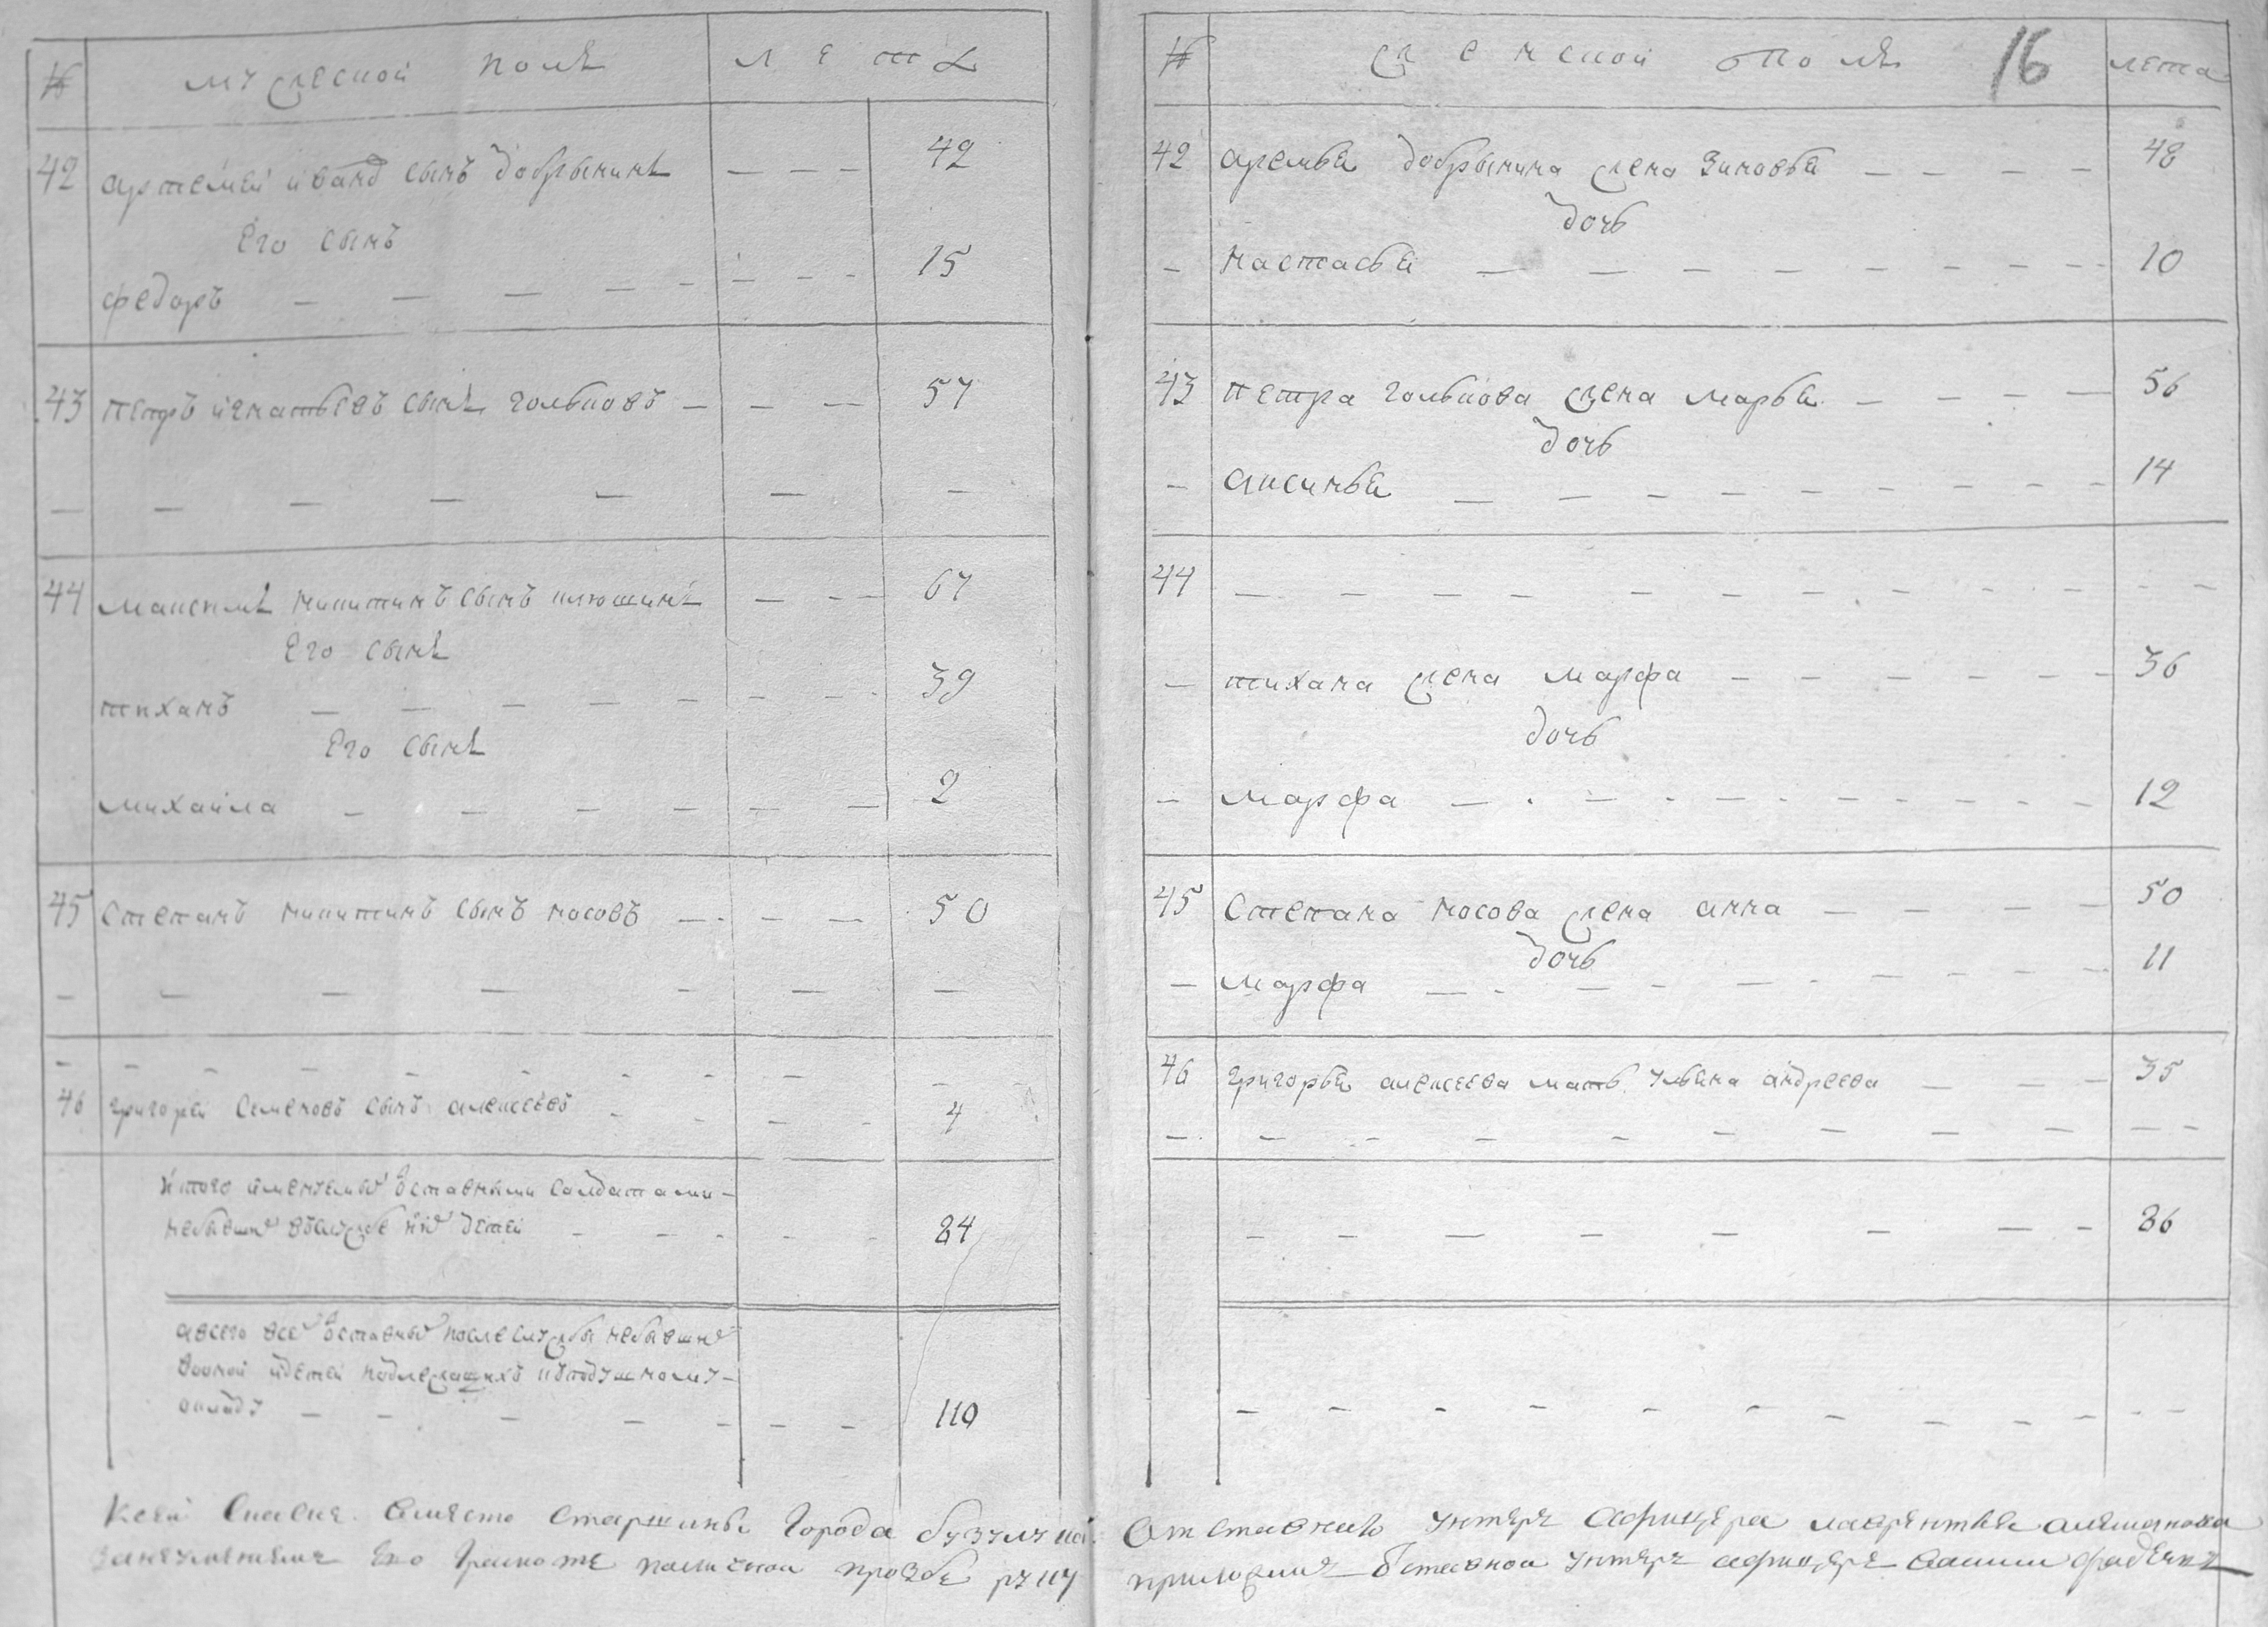 № мужескои полъ летъ
42 артемеи ивано сынъ добрынинъ — — — 42
его сынъ
федоръ — — — — — — — — 15
43 петръ игнатьевъ сынъ гольцовъ — — — 57
— — — — — — —
44 максимъ никитинъ сынъ илюшинъ — — — 67
его сынъ
тиханъ — — — — — — — — 39
его сынъ
михаила — — — — — — 2
45 степанъ никитинъ сынъ носовъ — — — 50
— — — — — — —
— — — — — — — — —
46 григореи семеновъ сынъ алексеевъ — — — — 4
итого отставными салдатами
детеи — — — — — 84
авсего все отставные после службы небывшие
детеи подлежащихъ кподушному
окладу — — — — — — — 110
№ женскои полъ 16 лета
42 добрынина жена зиновья — — — — 48
дочь
— настасья — — — — — — — — 10
43 петра гольцова жена марья — — — — 56
дочь
— аксинья — — — — — — — — 14
44 — — — — — — — — — — — —
— тихана жена марфа — — — — — — 36
дочь
— марфа — — — — — — — — — 12
45 степана носова жена анна — — — — 50
дочь
— марфа — — — — — — — — 11
46 григорья алексеева мать ульяна андреева — — — 35
— — — — — — — — — — —
— — — — — — — — 86
— — — — — — — — — — — —
Ксеи вместо старшины города бузулуцкои отставного унтеръ афицера лаврентья
занеумениемъ ево грамоте прозбе руку приложилъ отставнои унтеръ афицеръ